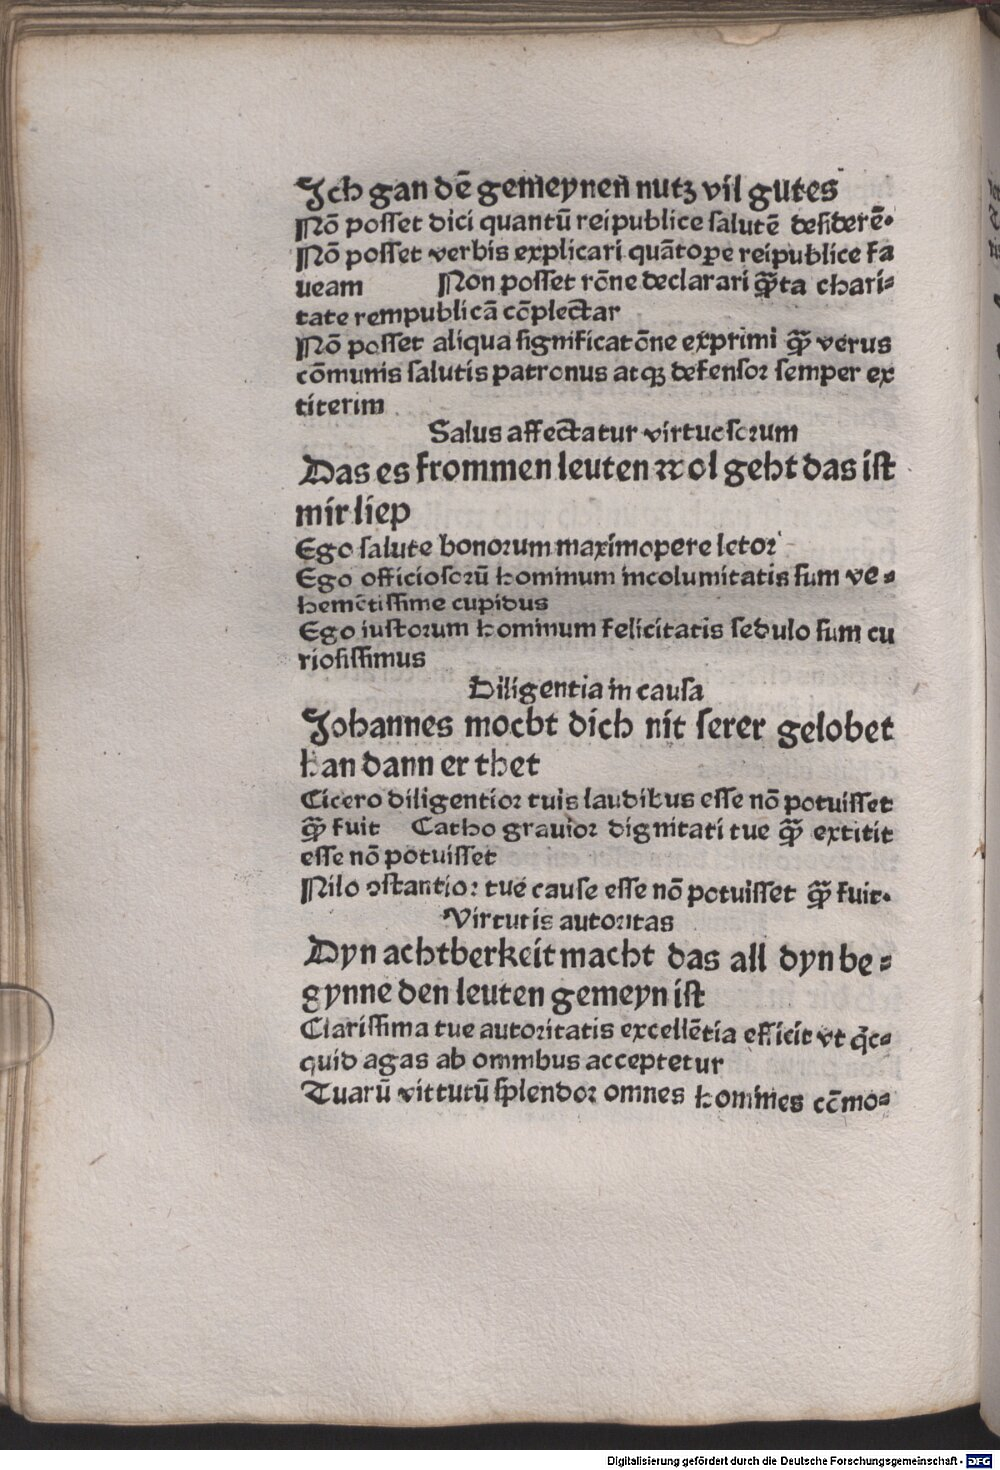 Ich gan dē gemeynen nutz vil gutes
Nō posset dici quantū reipublice salutē desiderē.
Nō posset verbis explicari quātope reipublice fa
ueam Non posset rōne declarari q̄ta chari⸗
tate rempublicā cōplectar
Nō posset aliqua significatōne exprimi q̄ verus
cōmunis salutis patronus atqꝫ defensor semper ex
titerim
Salus affectatur virtuosorum
Das es frommen leuten wol geht das ist
mir liep
Ego salute bonorum maximopere letor
Ego officiosorū hominum incolumitatis sum ve⸗
hemētissime cupidus
Ego iustorum hominum felicitatis sedulo sum cu
riosissimus
Diligentia in causa
Johannes mocht dich nit serer gelobet
han dann er thet
Cicero diligentior tuis laudibus esse nō potuisset
q̄ fuit Catho grauior dignitati tue q̄ extitit
esse nō potuisset
Nilo ꝯstantior tue cause esse nō potuisset q̄ fuit.
Virtutis autoritas
Dyn achtberkeit macht das all dyn be⸗
gynne den leuten gemeyn ist
Clarissima tue autoritatis excellētia efficit vt q̄c⸗
quid agas ab omnibus acceptetur
Tuarū vittutū splendor omnes homines cōmo⸗
Digitalisierung gefördert durch die Deutsche Forschungsgemeinschaft - DFG